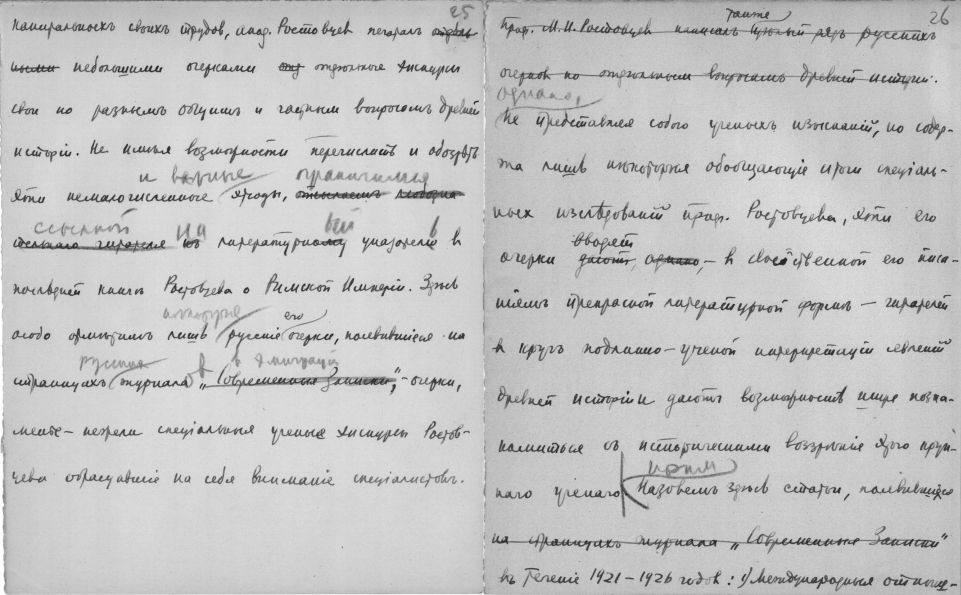 25
капитальныхъ своихъ трудовъ, акад. Ростовцев печаталъ отдѣль
ными небольшими очерками отдѣльные экскурсы
свои по разнымъ общимъ и частнымъ вопросамъ древней
исторіи. Не имѣя возможности перечислить и обозрѣть
и важные ограничимся
эти немалочисленные этюды, отсылаемъ любозна
ссылкой на ный в
тельнаго читателя къ литературному указателю в
послѣдней книгѣ Ростовцева о Римской Имперіи. Здѣсь
некоторые его
особо отмѣтимъ лишь русскіе очерки, появившіеся на
русских в в эмиграціи
страницахъ журнала „Современныя Записки", – очерки,
менѣе – нежели спеціальные ученые экскурсы Ростов-
цева обращавшіе на себя вниманіе спеціалистовъ.
26
также
Проф. М. И. Ростовцев написалъ цѣлый рядъ русскихъ
очерков по отдѣльнымъ вопросамъ древней исторіи.
однако,
Не представляя собого ученыхъ изысканій, но содер-
жа лишь нѣкоторые обобщающіе итоги спеціаль-
ныхъ изслѣдованій проф. Ростовцева, эти его
вводят
очерки даютъ, однако, – в свойственной его писа-
ніямъ прекрасной литературной формѣ – читателей
в кругъ подлинно-ученой интерпретаціи явленій
древней исторіи и даютъ возможность шире позна-
комиться съ историческими воззрѣніе этого круп-
наго ученаго. Назовемъ здѣсь статьи, появившіеся
на страницахъ журнала „Современныя Записки"
въ теченіе 1921–1926 годов: 1) Международныя отноше-